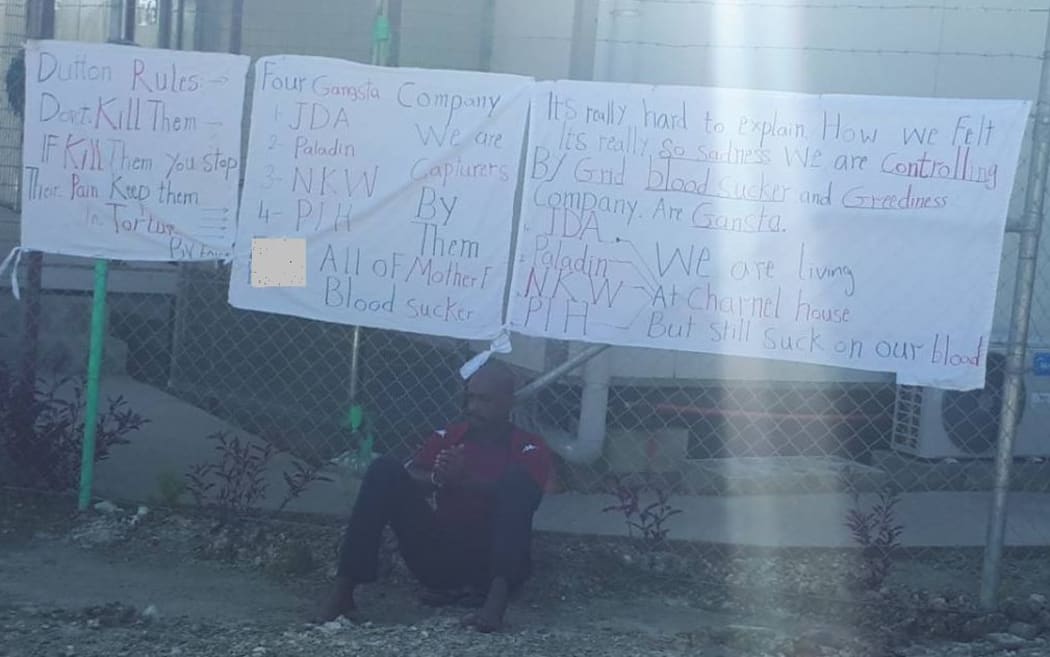 Dutton Rules:
Don't Kill Them
IF Kill Them You stop
Their Pain Keep them
In Torture
By
Four Gangsta Company
1- JDA
2- Paladin
3- NKW
4- PIH
We are
Capturers
By
Them
All of Mother F
Blood sucker
It's really hard to explain How we Felt
Its really so sadness We are Controlling
By Grid blood sucker and Greediness
Company. Are Gansta.
JDA
Paladin
NKW
PIH
We are living
At Charnel house
But still suck on our blood